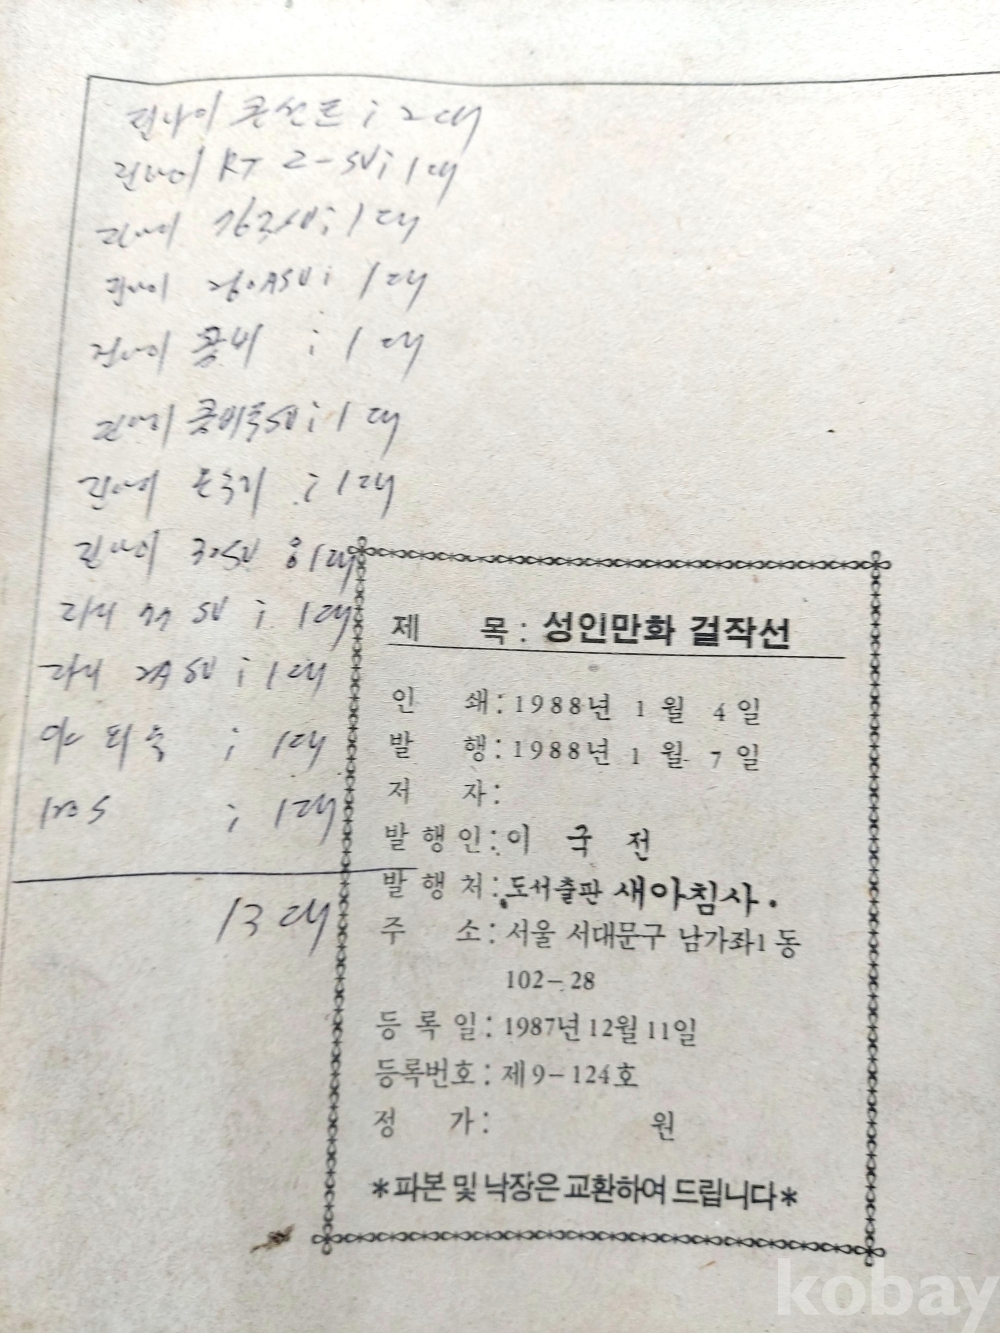 린나이 콘센트 ; 2대
린나이 RT 2-SV ; 1대
린나이 ; 1대
린나이 260ASV ; 1대
린나이 콤비 ; 1대
린나이 ; 1대
린나이 ; 1대
린나이 30SV 1대
라니 SV ; 1대
라니 2ASV ; 1대
; 1대
; 1대
13대
제 목 : 성인만화 걸작선
인 쇄 : 1988년 1월 4일
발 행 : 1988년 1월 7일
저 자 :
발행인 : 이 국 전
발행처 : 도서출판 새아침사.
주 소 : 서울 서대문구 남가좌1동
102-28
등록일 : 1987년 12월 11일
등록번호 : 제9-124호
정 가 : 원
*파본 및 낙장은 교환하여 드립니다*
kobay